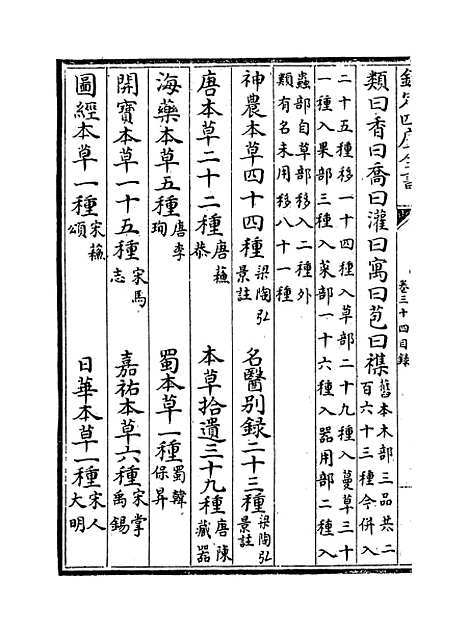 欽定四庫全書
卷三十四目録
類曰香曰喬曰灌曰寓曰苞曰襍舊本木部三品共二百六十三種今併入
二十五種移一十四種入草部二十九種入蔓草三十
一種入果部三種入菜部一十六種入器用部二種入
蟲部自草部移入二種外
類有名未用移八十一種
神農本草四十四種梁陶弘景註 名醫别録二十三種梁陶弘景註
唐本草二十二種唐蘇恭 本草拾遺三十九種唐陳藏器
海藥本草五種唐李珣 蜀本草一種蜀韓保昇
開寶本草一十五種宋馬志 嘉祐本草六種宋掌禹錫
圖經本草一種宋蘇頌 日華本草一種宋人大明